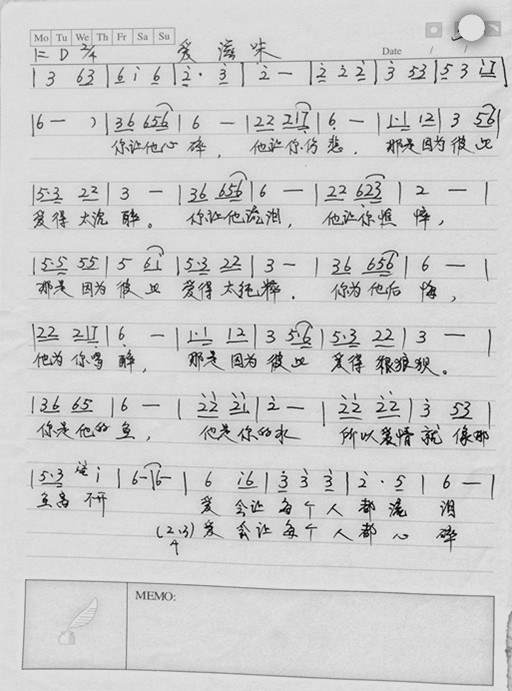 Mo Tu We Th Fr Sa Su
Date / /
1=D 2/4 爱滋味
|3 63|6 i 6|2·3|2 -|2 2 2|3 53|5 3 i7|
|6 - )|36 656|6 -|22 217|6 -|1·1 12|3 56|
你让他心碎, 他让你伤悲, 那是因为彼此
|5·3 22|3 -|36 656|6 -|22 623|2 -|
爱得太沉醉。 你让他流泪, 他让你憔悴,
|5·5 55|5 6i|5·3 22|3 -|36 656|6 -|
那是因为彼此 爱得太纯粹, 你为他后悔,
|22 217|6 -|1·1 12|3 5·6|5·3 22|3 -|
他为你喝醉, 那是因为彼此 爱得狠狼狈。
|36 65|6 -|22 21|2 -|22 22|3 53|
你是他的鱼, 他是你的水 所以爱情就像那
|5·3 i|6 -|6 -|6 i6|3 3 3|2·5|6 -|
鱼离不开 爱会让每个人都流泪
(2·3) 爱会让每个人都心碎
4
MEMO: